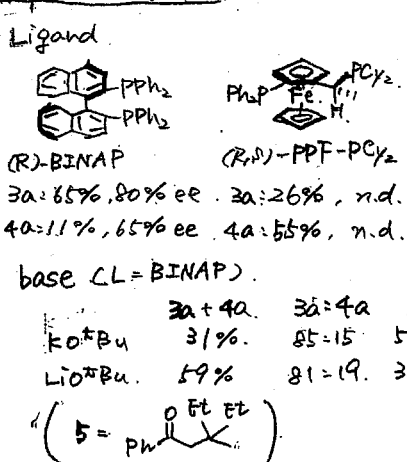 Ligand
PPh₂
PPh₂
Ph₂P
Fe
PCy₂
H
(R)-BINAP
(R,S)-PPF-PCy₂
3a: 65%, 80% ee
3a: 26%, n.d.
4a: 11%, 65% ee
4a: 55%, n.d.
base (L = BINAP)
3a + 4a
3a : 4a
KOtBu 31% 85:15 5
LiOtBu 59% 81:19 3
5 =
O
Et Et
Ph